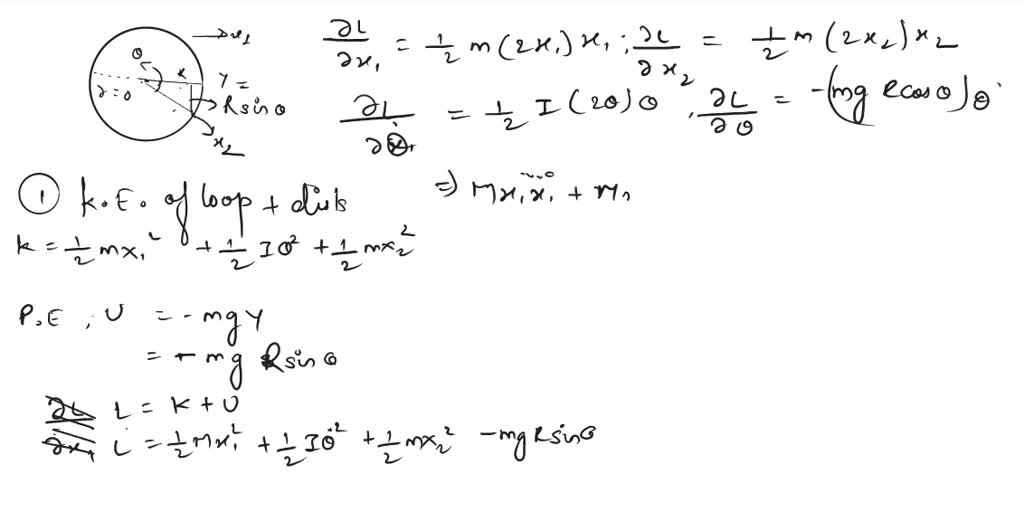 θ → x₁
γ=0 x y = R sin θ
x₂
∂L/∂x₁ = 1/2 m (2x₁) x₁ ; ∂L/∂x₂ = 1/2 m (2x₂) x₂
∂L/∂θ̇ = 1/2 I (2θ) θ , ∂L/∂θ = -(mg R cos θ) θ
① K.E. of loop + disk
⇒ Mx₁ẍ₁ + m
k = 1/2 mx₁² + 1/2 Iθ² + 1/2 mx₂²
P.E , U = - mgY
= - mg R sin θ
L = K + U
L = 1/2 Mx₁² + 1/2 Iθ̇² + 1/2 mx₂² - mg R sin θ